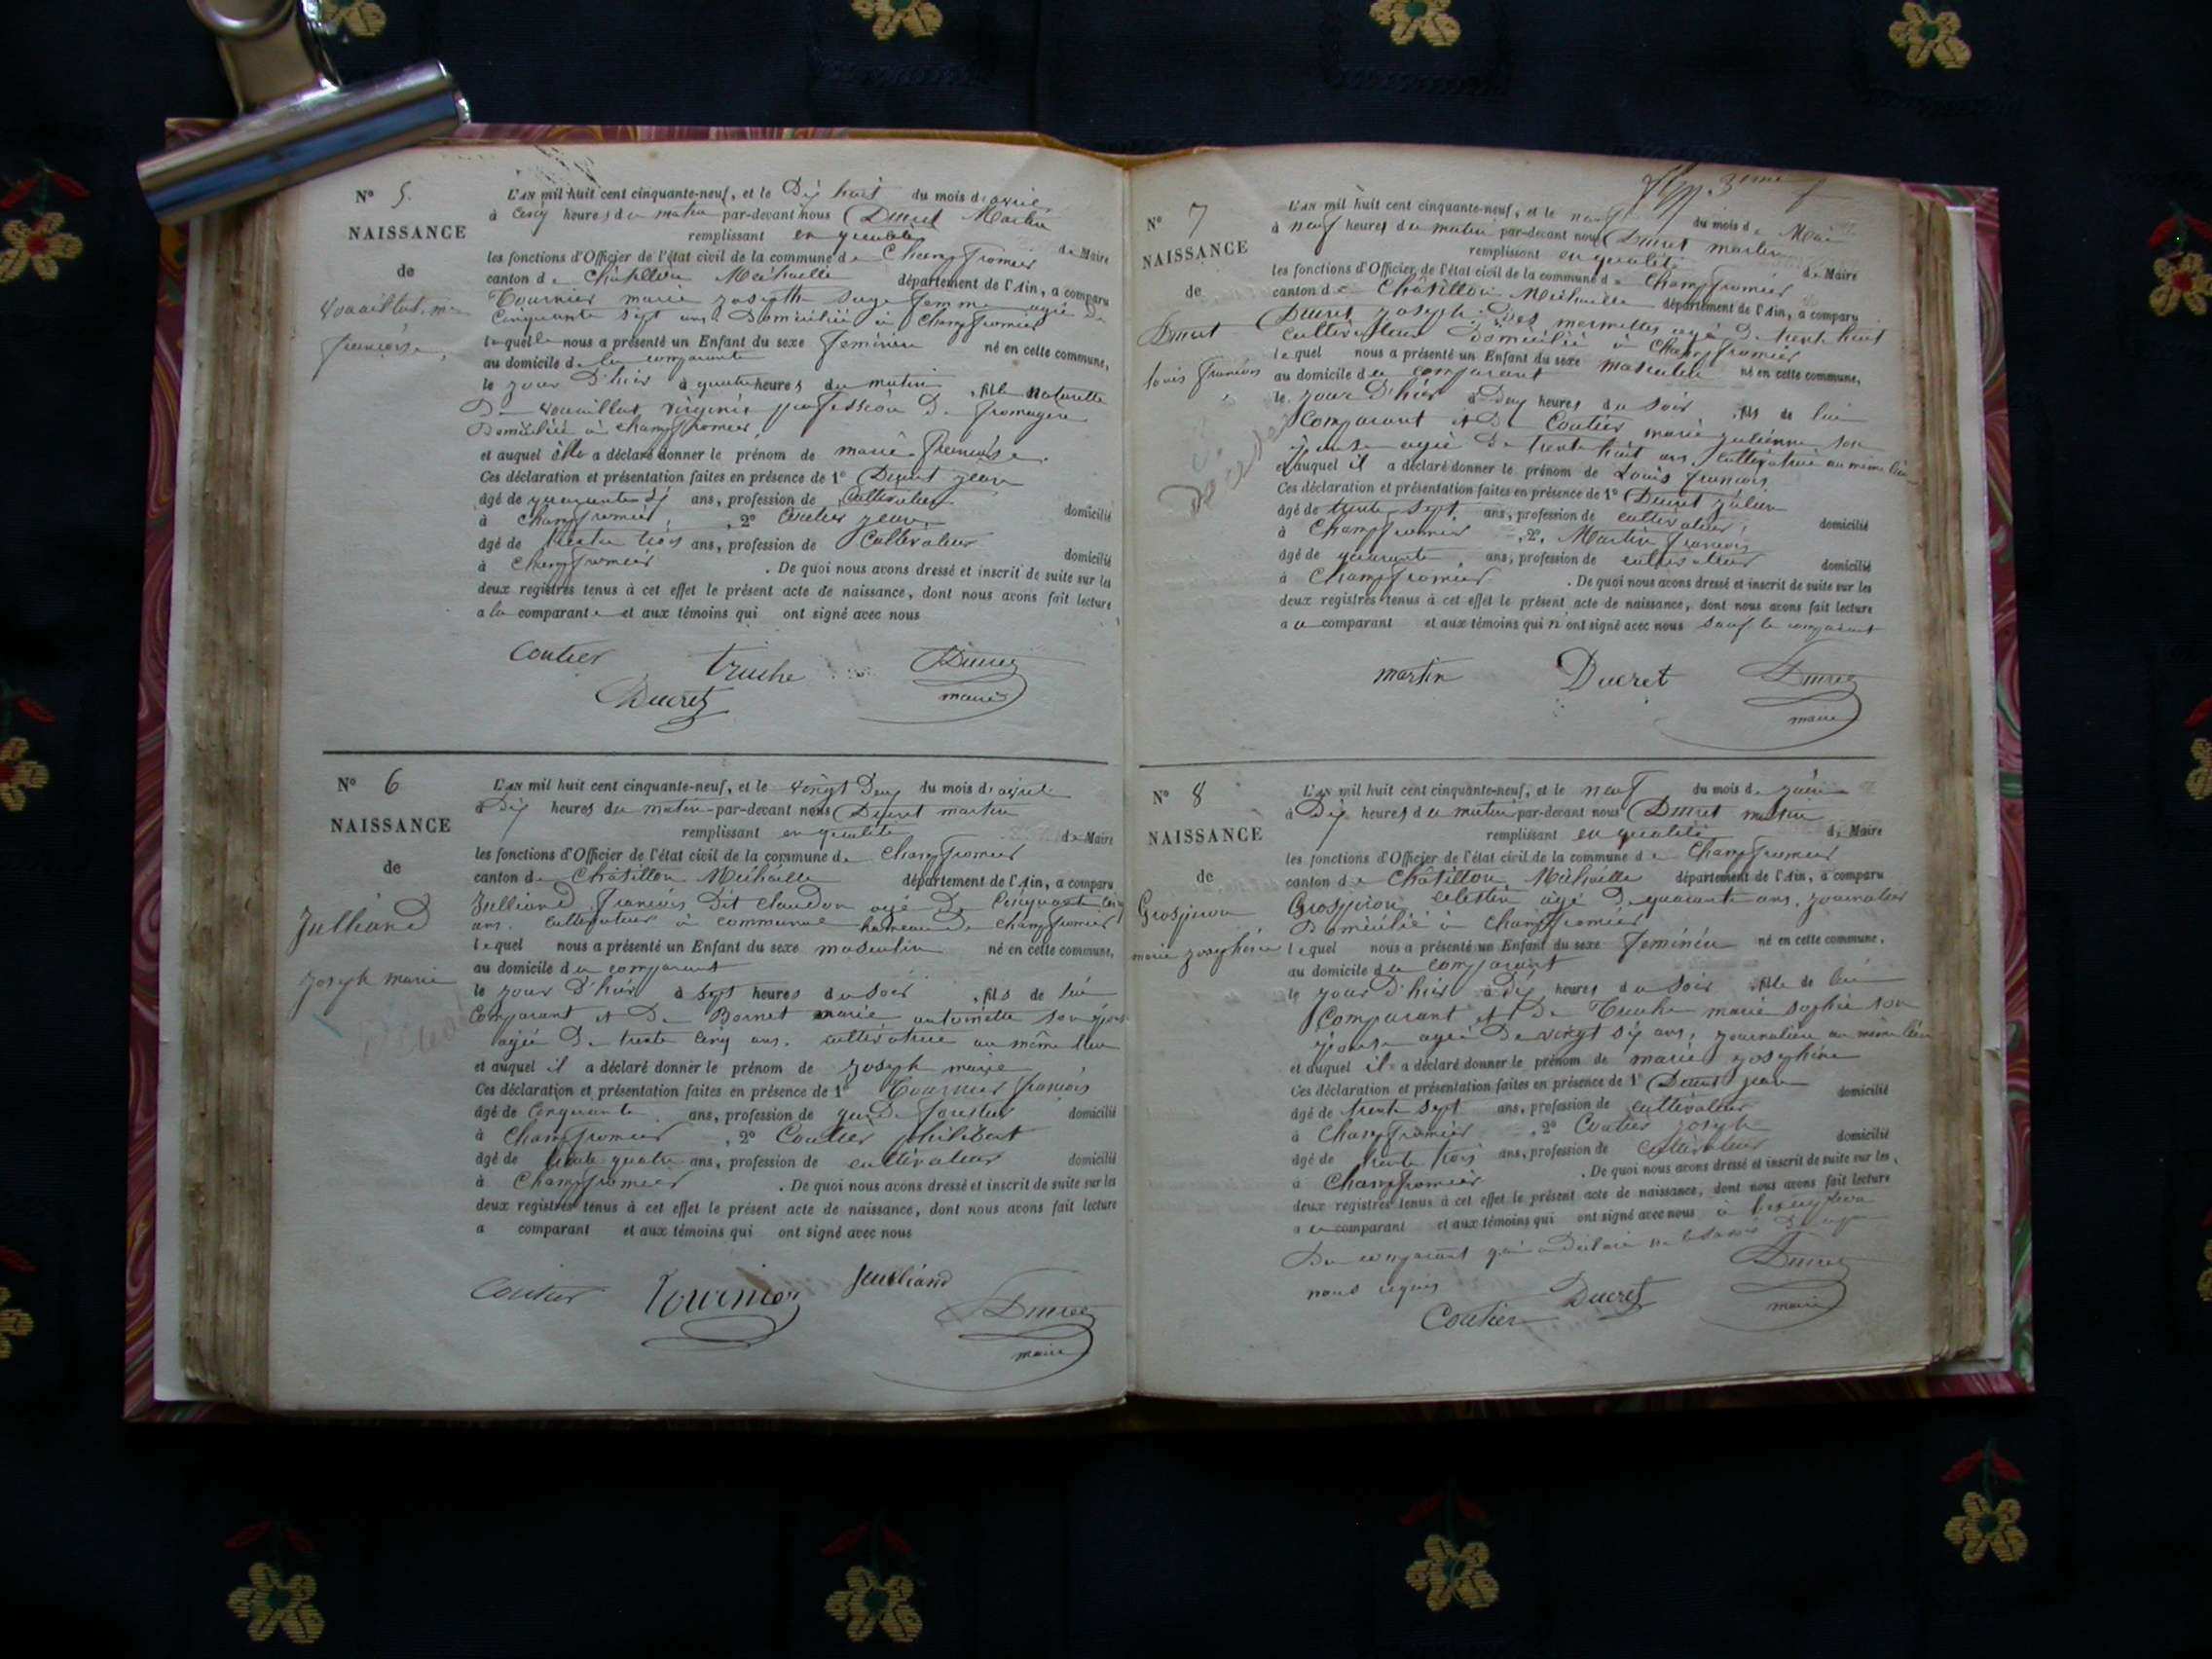 N° 5.
NAISSANCE
de
françoise
L'AN mil huit cent cinquante-neuf, et le Dix huit du mois d'avril
à cinq heures du matin par-devant nous Ducret Martin
remplissant en qualité de Maire
les fonctions d'Officier de l'état civil de la commune de Champfromier
canton de Châtillon Michaille département de l'Ain, a comparu
Tournier marie josephte sage femme agée de
cinquante sept ans Domiciliée à Champfromier
laquelle nous a présenté un Enfant du sexe feminin né en cette commune,
au domicile de la comparante
le jour D'hier à quatre heures du matin, fille naturelle
De virginie profession De fromagere
Domiciliée à champfromier
et auquel elle a déclaré donner le prénom de marie françoise.
Ces déclaration et présentation faites en présence de 1° Ducret jean
âgé de quarante ans, profession de Cultivateur domicilié
à Champfromier, 2° Coutier jean,
âgé de trente trois ans, profession de Cultivateur domicilié
à Champfromier. De quoi nous avons dressé et inscrit de suite sur les
deux registres tenus à cet effet le présent acte de naissance, dont nous avons fait lecture
a la comparante et aux témoins qui ont signé avec nous
Coutier truche Ducret
Ducret maire
N° 6
NAISSANCE
de
Julliand
Joseph marie
L'AN mil huit cent cinquante-neuf, et le vingt Deux du mois d'avril
à Dix heures du matin par-devant nous Ducret martin
remplissant en qualité de Maire
les fonctions d'Officier de l'état civil de la commune de Champfromier
canton de Châtillon Michaille département de l'Ain, a comparu
Julliand françois Dit claudon agé De Cinquante cinq
ans. cultivateur à communal hameau De champfromier
lequel nous a présenté un Enfant du sexe masculin né en cette commune,
au domicile du comparant
le jour D'hier à sept heures du soir, fils de lui
Comparant et De Bornet marie antoinette son épouse
agée De trente cinq ans. cultivatrice au même lieu
et auquel il a déclaré donner le prénom de joseph marie
Ces déclaration et présentation faites en présence de 1° Tournier françois
âgé de Cinquante ans, profession de garde forestier domicilié
à Champfromier, 2° Coutier philibert
âgé de trente quatre ans, profession de cultivateur domicilié
à Champfromier. De quoi nous avons dressé et inscrit de suite sur les
deux registres tenus à cet effet le présent acte de naissance, dont nous avons fait lecture
a comparant et aux témoins qui ont signé avec nous
Coutier Tournier Julliand Ducret
maire
N° 7
NAISSANCE
de
Ducret
louis françois
Décédé
L'AN mil huit cent cinquante-neuf, et le neuf du mois de Mai
à neuf heures du matin par-devant nous Ducret martin
remplissant en qualité de Maire
les fonctions d'Officier de l'état civil de la commune de Champfromier
canton de Châtillon Michaille département de l'Ain, a comparu
Ducret joseph Des mermettes agé De trente huit
cultivateur Domicilié à Champfromier
lequel nous a présenté un Enfant du sexe masculin né en cette commune,
au domicile du comparant
le jour D'hier à Dix heures du soir, fils de lui
Comparant et De Coutier marie julienne son
épouse agée De trente huit ans cultivatrice au même lieu
et auquel il a déclaré donner le prénom de Louis françois
Ces déclaration et présentation faites en présence de 1° Ducret julien
âgé de trente sept ans, profession de cultivateur, domicilié
à Champfromier, 2° Martin françois
âgé de quarante ans, profession de cultivateur domicilié
à Champfromier. De quoi nous avons dressé et inscrit de suite sur les
deux registres tenus à cet effet le présent acte de naissance, dont nous avons fait lecture
au comparant et aux témoins qui n ont signé avec nous sauf le comparant
martin Ducret Ducret
maire
N° 8
NAISSANCE
de
Grosjuion
marie josephine
L'AN mil huit cent cinquante-neuf, et le neuf du mois de juin
à Dix heures du matin par-devant nous Ducret martin
remplissant en qualité de Maire
les fonctions d'Officier de l'état civil de la commune de Champfromier
canton de Châtillon Michaille département de l'Ain, a comparu
celestin agé De quarante ans. journalier
Domicilié à Champfromier
lequel nous a présenté un Enfant du sexe feminin né en cette commune,
au domicile du comparant
le jour D'hier à dix heures du soir fille de lui
Comparant et De Truche marie sophie son
épouse agée De vingt six ans, journalière au même lieu
et auquel il a déclaré donner le prénom de marie josephine
Ces déclaration et présentation faites en présence de 1° Ducret jean
âgé de trente sept ans, profession de cultivateur domicilié
à Champfromier, 2° Coutier joseph
âgé de trente trois ans, profession de Cultivateur domicilié
à Champfromier. De quoi nous avons dressé et inscrit de suite sur les
deux registres tenus à cet effet le présent acte de naissance, dont nous avons fait lecture
au comparant et aux témoins qui ont signé avec nous à l'exception
Du comparant qui a Déclaré ne le savoir De ce
nous requis
Coutier Ducret Ducret
maire